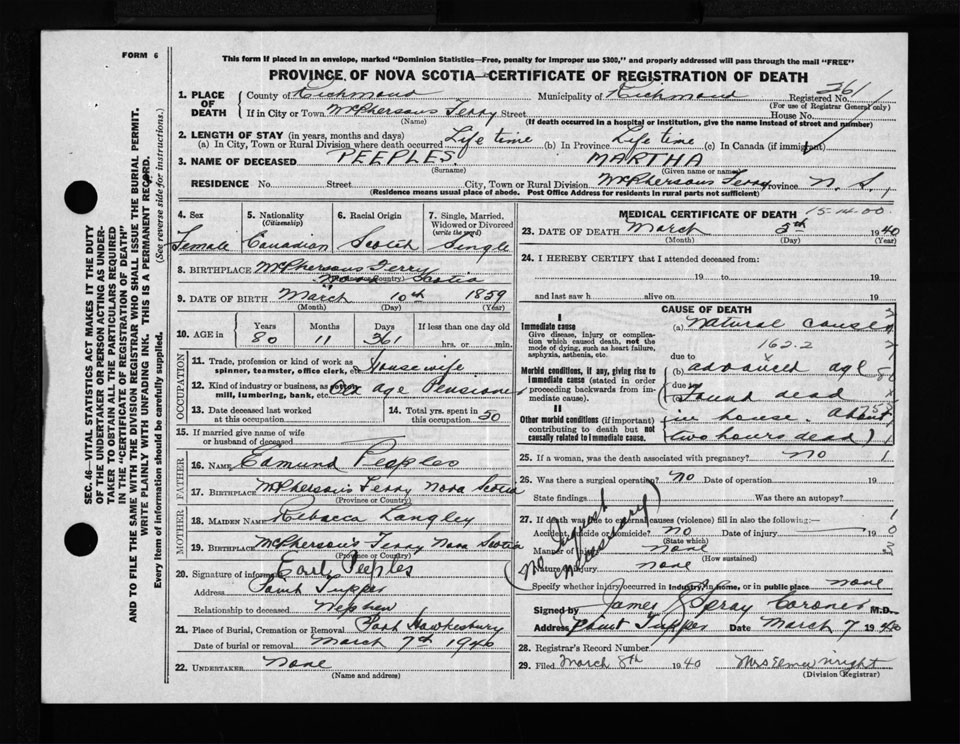 FORM 6
This form If placed in an envelope, marked "Dominion Statistics—Free, penalty for improper use $300," and properly addressed will pass through the mail "FREE"
PROVINCE OF NOVA SCOTIA—CERTIFICATE OF REGISTRATION OF DEATH
SEC. 46—VITAL STATISTICS ACT MAKES IT THE DUTY
OF THE UNDERTAKER OR PERSON ACTING AS UNDER-
TAKER TO OBTAIN ALL THE PARTICULARS REQUIRED
IN THE "CERTIFICATE OF REGISTRATION OF DEATH"
AND TO FILE THE SAME WITH THE DIVISION REGISTRAR WHO SHALL ISSUE THE BURIAL PERMIT.
WRITE PLAINLY WITH UNFADING INK. THIS IS A PERMANENT RECORD.
Every item of information should be carefully supplied. (See reverse side for instructions.)
1. PLACE OF DEATH County of Richmond Municipality of Richmond Registered No. 261
(For use of Registrar General only)
If in City or Town McPhersons Ferry Street House No.
(Name) (If death occurred in a hospital or institution, give the name instead of street and number)
2. LENGTH OF STAY (in years, months and days)
(a) In City, Town or Rural Division where death occurred Life time (b) In Province Life time (c) In Canada (if immigrant)
3. NAME OF DECEASED PEEPLES MARTHA
(Surname) (Given name or names)
RESIDENCE No. Street City, Town or Rural Division McPhersons Ferry Province N.S.
(Residence means usual place of abode. Post Office Address for residents in rural parts not sufficient)
4. Sex Female
5. Nationality (Citizenship) Canadian
6. Racial Origin Scotch
7. Single, Married, Widowed or Divorced (write the word) Single
8. BIRTHPLACE McPhersons Ferry
Nova Scotia
(Province or Country)
9. DATE OF BIRTH March 10th 1859
(Month) (Day) (Year)
10. AGE in Years Months Days If less than one day old
80 11 361 hrs. or min.
OCCUPATION
11. Trade, profession or kind of work as spinner, teamster, office clerk, etc. Housewife
12. Kind of industry or business, as cotton mill, lumbering, bank, etc. Old age Pensioner
13. Date deceased last worked at this occupation
14. Total yrs. spent in this occupation 50
15. If married give name of wife or husband of deceased
FATHER
16. NAME Edmund Peeples
17. BIRTHPLACE McPherson's Ferry Nova Scotia
(Province or Country)
MOTHER
18. MAIDEN NAME Rebecca Langley
19. BIRTHPLACE McPherson's Ferry Nova Scotia
(Province or Country)
20. Signature of informant Earl Peeples
Address Point Tupper
Relationship to deceased Nephew
21. Place of Burial, Cremation or Removal Port Hawkesbury
Date of burial or removal March 7th 1940
22. UNDERTAKER None
(Name and address)
MEDICAL CERTIFICATE OF DEATH
15-14-00
23. DATE OF DEATH March 5th 1940
(Month) (Day) (Year)
24. I HEREBY CERTIFY that I attended deceased from:
19 to 19
and last saw h alive on 19
CAUSE OF DEATH
I
Immediate cause
Give disease, injury or complication which caused death, not the mode of dying, such as heart failure, asphyxia, asthenia, etc.
(a) Natural causes
162.2
due to
Morbid conditions, if any, giving rise to immediate cause (stated in order proceeding backwards from immediate cause).
(b) advanced age
due to
(c) (Found dead
II
Other morbid conditions (if important) contributing to death but not causally related to immediate cause.
in house. About
two hours dead)
25. If a woman, was the death associated with pregnancy? No
26. Was there a surgical operation? No Date of operation 19
State findings Was there an autopsy?
27. If death was due to external causes (violence) fill in also the following:
Accident, suicide or homicide? No Date of injury 19
(State which)
Manner of injury none
(How sustained)
Nature of injury none
(No Inquest necessary)
Specify whether injury occurred in industry, in home, or in public place none
Signed by James Spray Coroner M.D.
Address Point Tupper Date March 7 1940
28. Registrar's Record Number
29. Filed March 8th 1940 Mrs Elmer Wright
(Division Registrar)